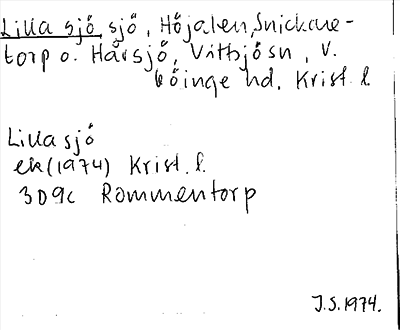 Lilla sjö, sjö, Höjalen, Snickare-
torp o. Hårsjö, Vittsjö sn, V.
Göinge hd. Krist. l
Lillasjö
ek(1974) Krist. l.
3D9c Rommentorp
J.S. 1974.